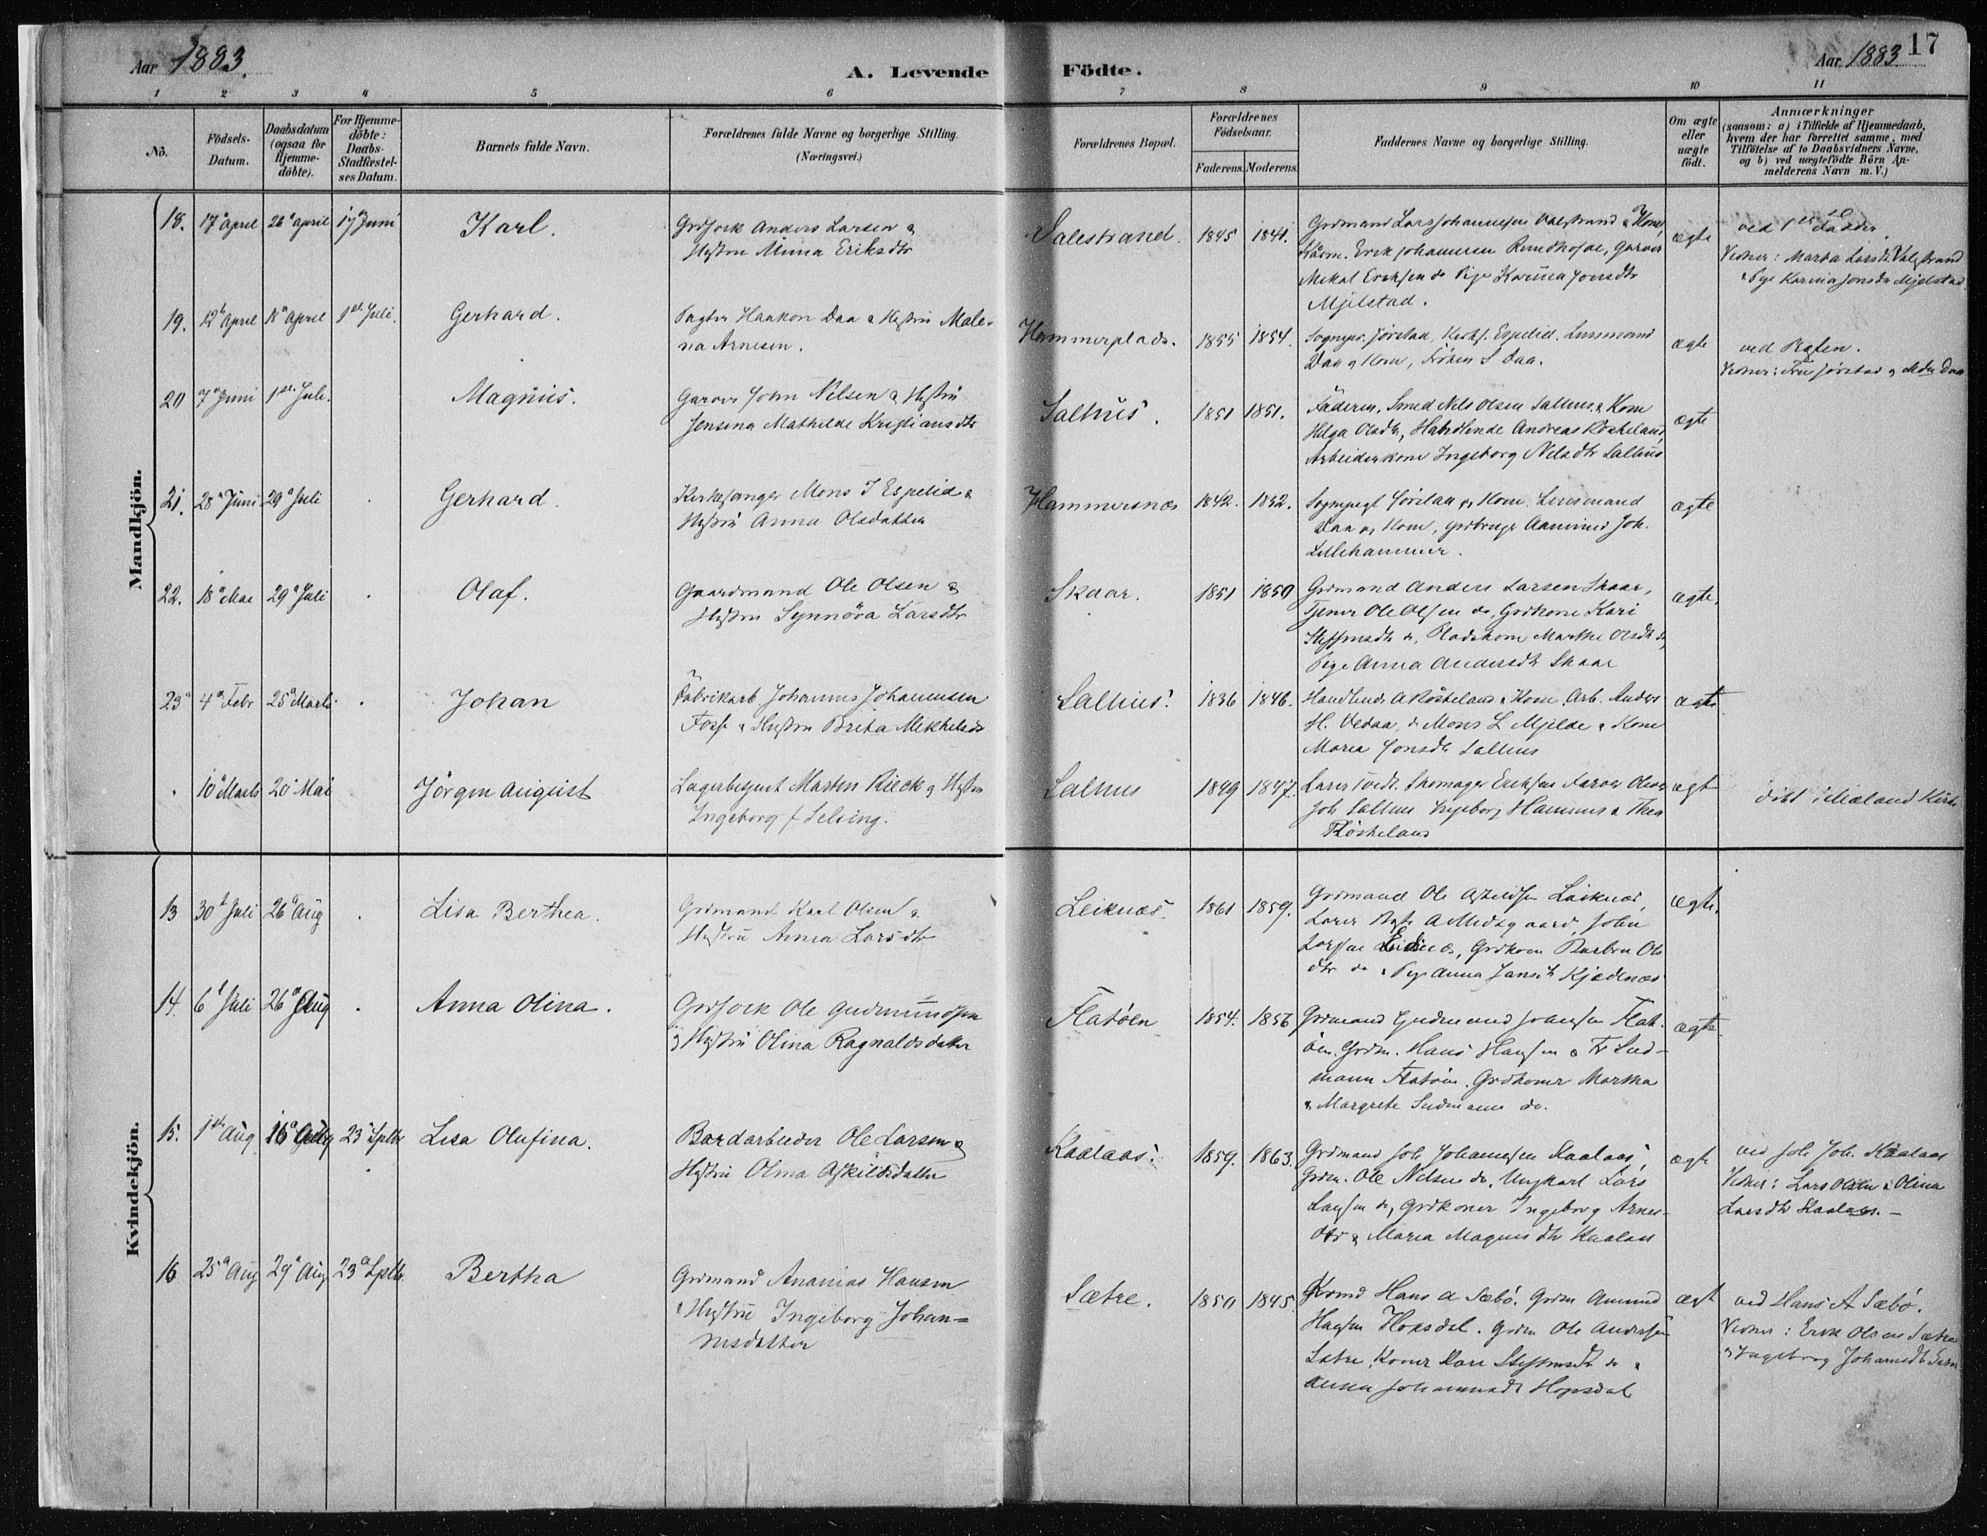 Aar 1883.
A. Levende Födte.
Aar 1883
17
1 2 3 4 5 6 7 8 9 10 11
No.
Födsels-
Datum.
Daabsdatum
(ogsaa for
Hjemme-
döbte).
For Hjemme-
döbte:
Daabs-
Stadfæstel-
ses Datum.
Barnets fulde Navn.
Forældrenes fulde Navne og borgerlige Stilling.
(Næringsvei.)
Forældrenes Bopæl.
Forældrenes
Födselsaar.
Faderens. Moderens.
Faddernes Navne og borgerlige Stilling.
Om ægte
eller
uægte
födt.
Anmærkninger
(saasom: a) i Tilfælde af Hjemmedaab,
hvem der har forrettet samme, med
Tilföielse af to Daabsvidners Navne,
og b) ved uægtefödte Börn An-
melderens Navn m. V.)
Mandkjön.
18. 17 April 26 April 17 Juni
Karl.
Grdfork Anders Larsen &
Hustru Minna Eriksdtr
Salestrand. 1845 1841.
Grdmand Lars Johannesen Valestrand & Kone
Erik Johannesen Rundhofde, Garver
Mikal Eriksen do Pige Karina Jonsdtr
Mjelstad.
ægte
Vidner: Marta Larsdtr Valestrand
& Pige Karina Jonsdtr Mjelstad
19. 12 April 18 April 1ste Juli.
Gerhard.
Haakon Daa & Hustru Male-
na Arnesen.
Hammerplads. 1855 1854.
Sognepr. Jörstad, Kirkes. Espelid, Lensmand
Daa & Kone, Fröken S Daa.
ægte
ved Presten.
Vidner: Fru Jörstad & Daa
20 7 Juni 1ste Juli.
Magnus.
Garver John Nilsen & Hustru
Jensina Mathilde Kristiansdtr
Salhus. 1851 1851.
Faderen, Smed Nils Olsen Salhus & Kone
Helga Olsdtr, Handlende Andreas Röskeland,
Arbeiderkone Ingeborg Nilsdtr Salhus
ægte
21. 28 Juni 29 Juli
Gerhard.
Kirkesanger Mons J Espelid &
Hustru Anna Olsdatter
Hammersnes 1842. 1852.
Jörstad & Kone Lensmand
Daa & Kone, Grdbruger Joh.
Lillehammer.
ægte
22. 18 Mai 29 Juli
Olaf.
Gaardmand Ole Olsen &
Hustru Synnöva Larsdtr
Skaar. 1851 1850
Grdmand Anders Larsen Skaar,
Tjener Ole Olsen do, Grdkone Kari
Steffensdtr do, Pladskone Marthe Olsdtr do,
Pige Anna Andersdtr Skaar
ægte.
23 4 Febr 25 Marts
Johan
Fabrikarb Johannes Johannesen
Foss & Hustru Brita Mikkelsdtr
Salhus. 1836 1846.
Handlende A Röskeland & Kone, Arb. Anders
H. Vedaa, & Mons L Mjelde & Kone
Maria Jonsdtr Salhus
ægte
10 Marts 20 Mai
Jörgen August
Lagerbetjent Morten Rieck & Hustru
Ingeborg f Leling.
Salhus 1849 1847.
Skomager Eriksen
Joh Salhus Ingeborg Hammer & Thea
Röskeland
ægt
döbt i Mæland Kirke
Kvindekjön.
13 30 Juli 26 Aug
Lisa Berthea.
Grdmand Karl Olsen &
Hustru Anna Larsdtr
Leiknes. 1861 1859.
Grdmand Ole Askildsen Leiknes,
Lærer A Midtgaard, John
Larsen Leiknes, Grdkone Barbro Ols
dtr do & Pige Anna Jansdtr Kjædenæs
ægte.
14. 6 Juli 26 Aug
Anna Olina.
Grdfork Ole Gudmundsen
& Hustru Olina Ragnaldsdatter
Flatöen 1854. 1856
Grdmand Gudmund Johnsen Flat-
öen, Grdm. Hans Hansen & Fr Lud-
mann Flatöen, Grdkoner Martha
& Margrete Ludmann do.
ægte
15. 1ste Aug 16 Aug 23 Septbr
Lisa Olufina.
Bordarbeider Ole Larsen &
Hustru Olina Askildsdatter
Kaalaas. 1859. 1863.
Grdmand Joh Johannesen Kaalaas,
Grdm. Ole Nilsen do, Ungkarl Lars
Larsen do, Grdkoner Ingeborg Arnes-
dtr & Maria Magnusdtr Kaalaas
ægte
ved Joh Joh. Kaalaas
Vidner: Lars Olsen & Olina
Larsdtr Kaalaas.
16 25 Aug 29 Aug 23 Septbr.
Bertha
Grdmand Ananias Hansen
& Hustru Ingeborg Johan-
nesdatter
Sætre. 1850 1845
Hans A Sæbö. Grdm Amund
Hansen Hopsdal. Grdm Ole Andersen
Sætre, Koner Kari Steffensdtr do &
Anna Johannesdtr Hopsdal
ægt
ved Hans A Sæbö.
Vidner: Erik Olsen Sætre
& Ingeborg Johannesdtr